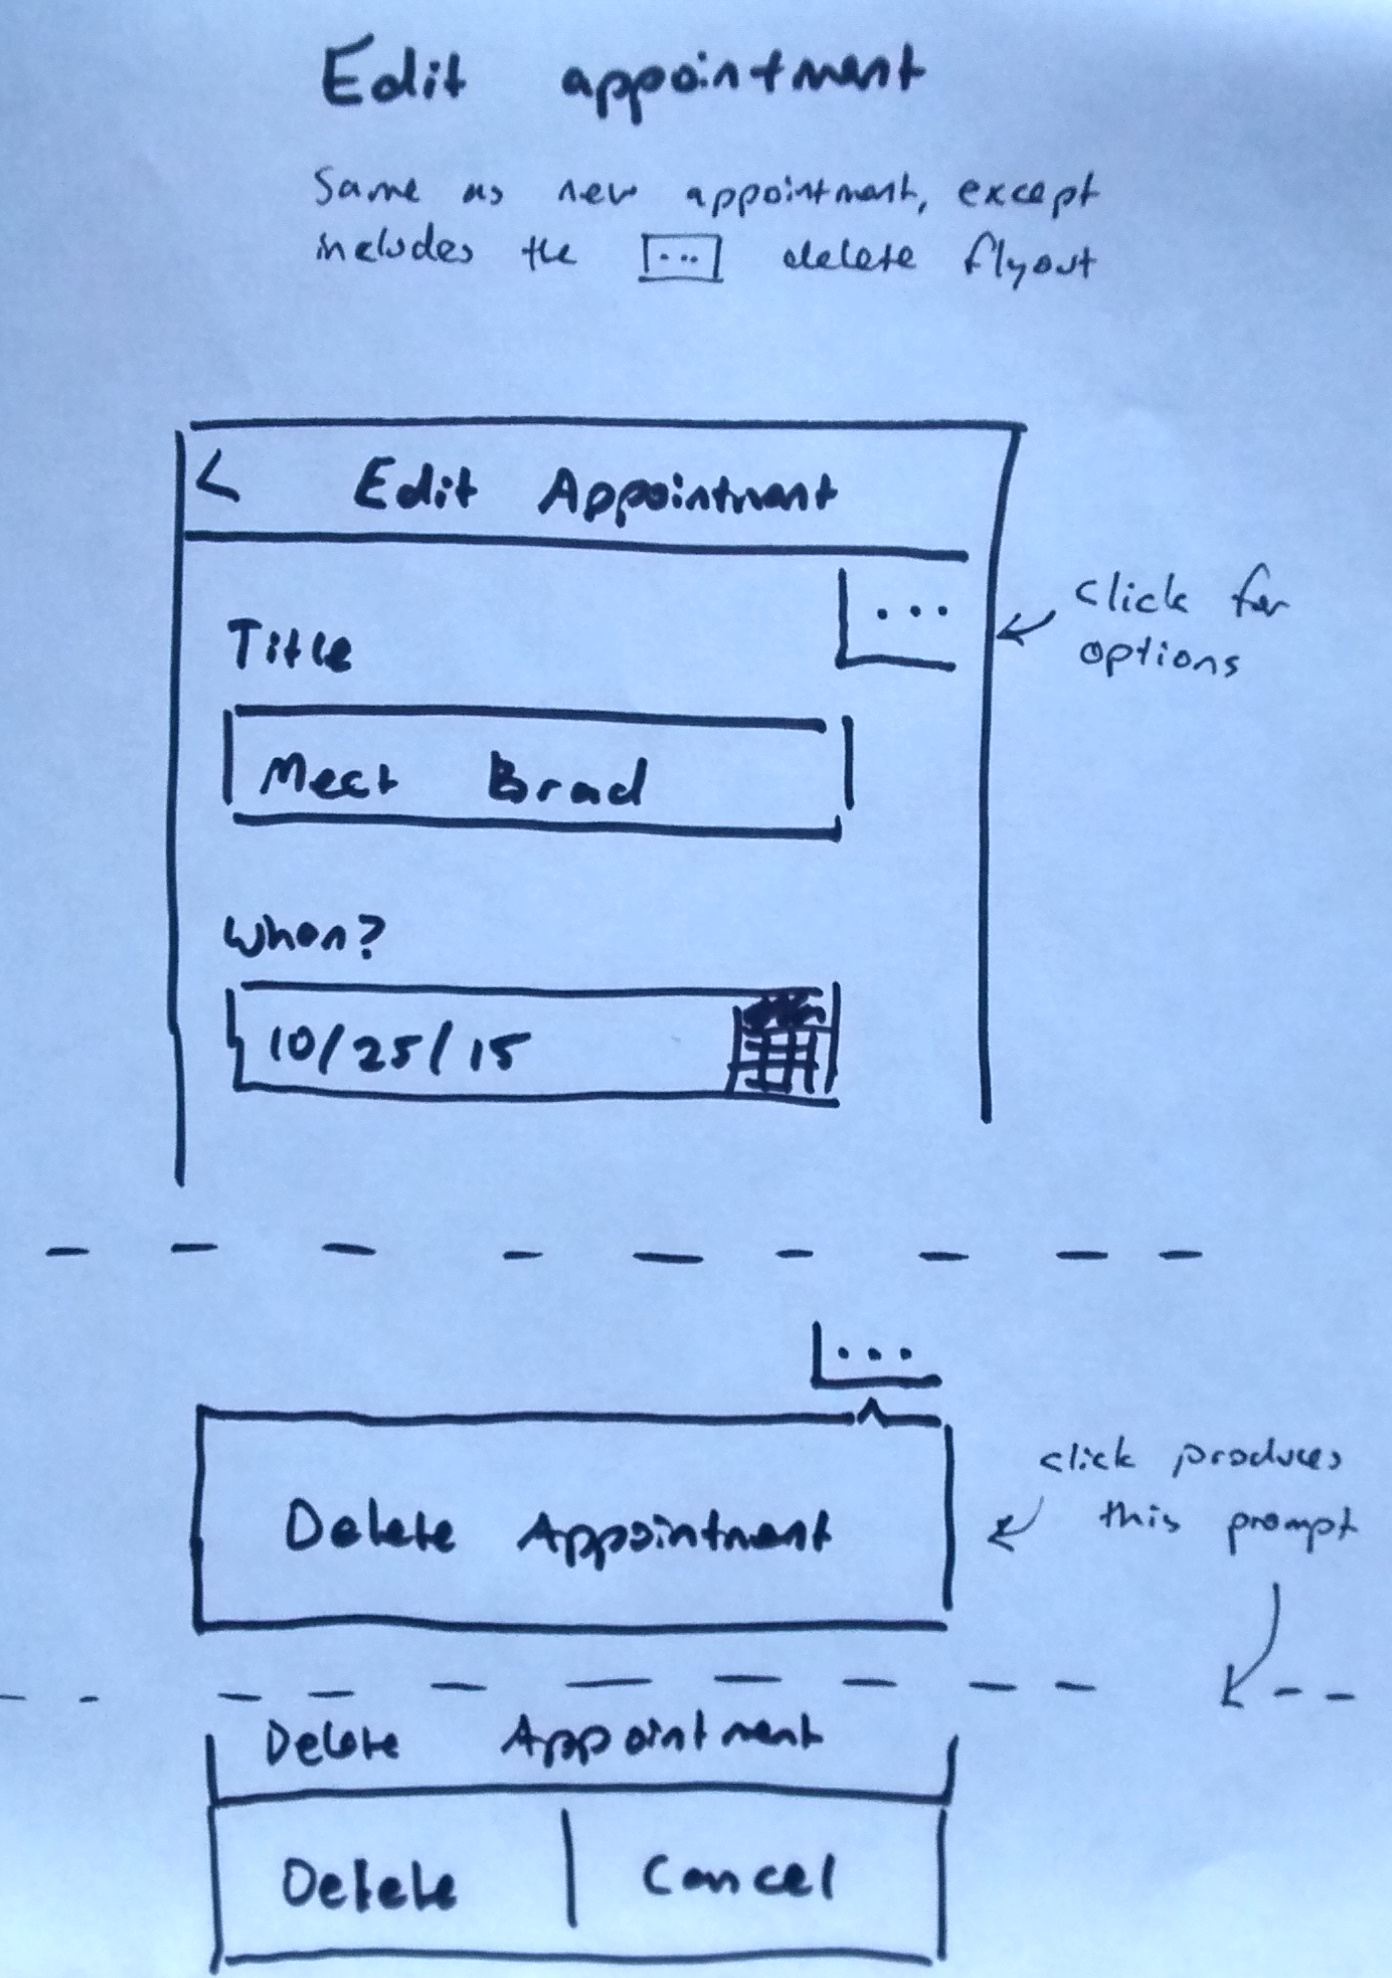 Edit appointment
Same as new appointment, except
includes the [...] delete flyout
< Edit Appointment
...
click for
options
Title
Meet Brad
When?
10/25/15
...
Delete Appointment
click produces
this prompt
Delete Appointment
Delete | Cancel